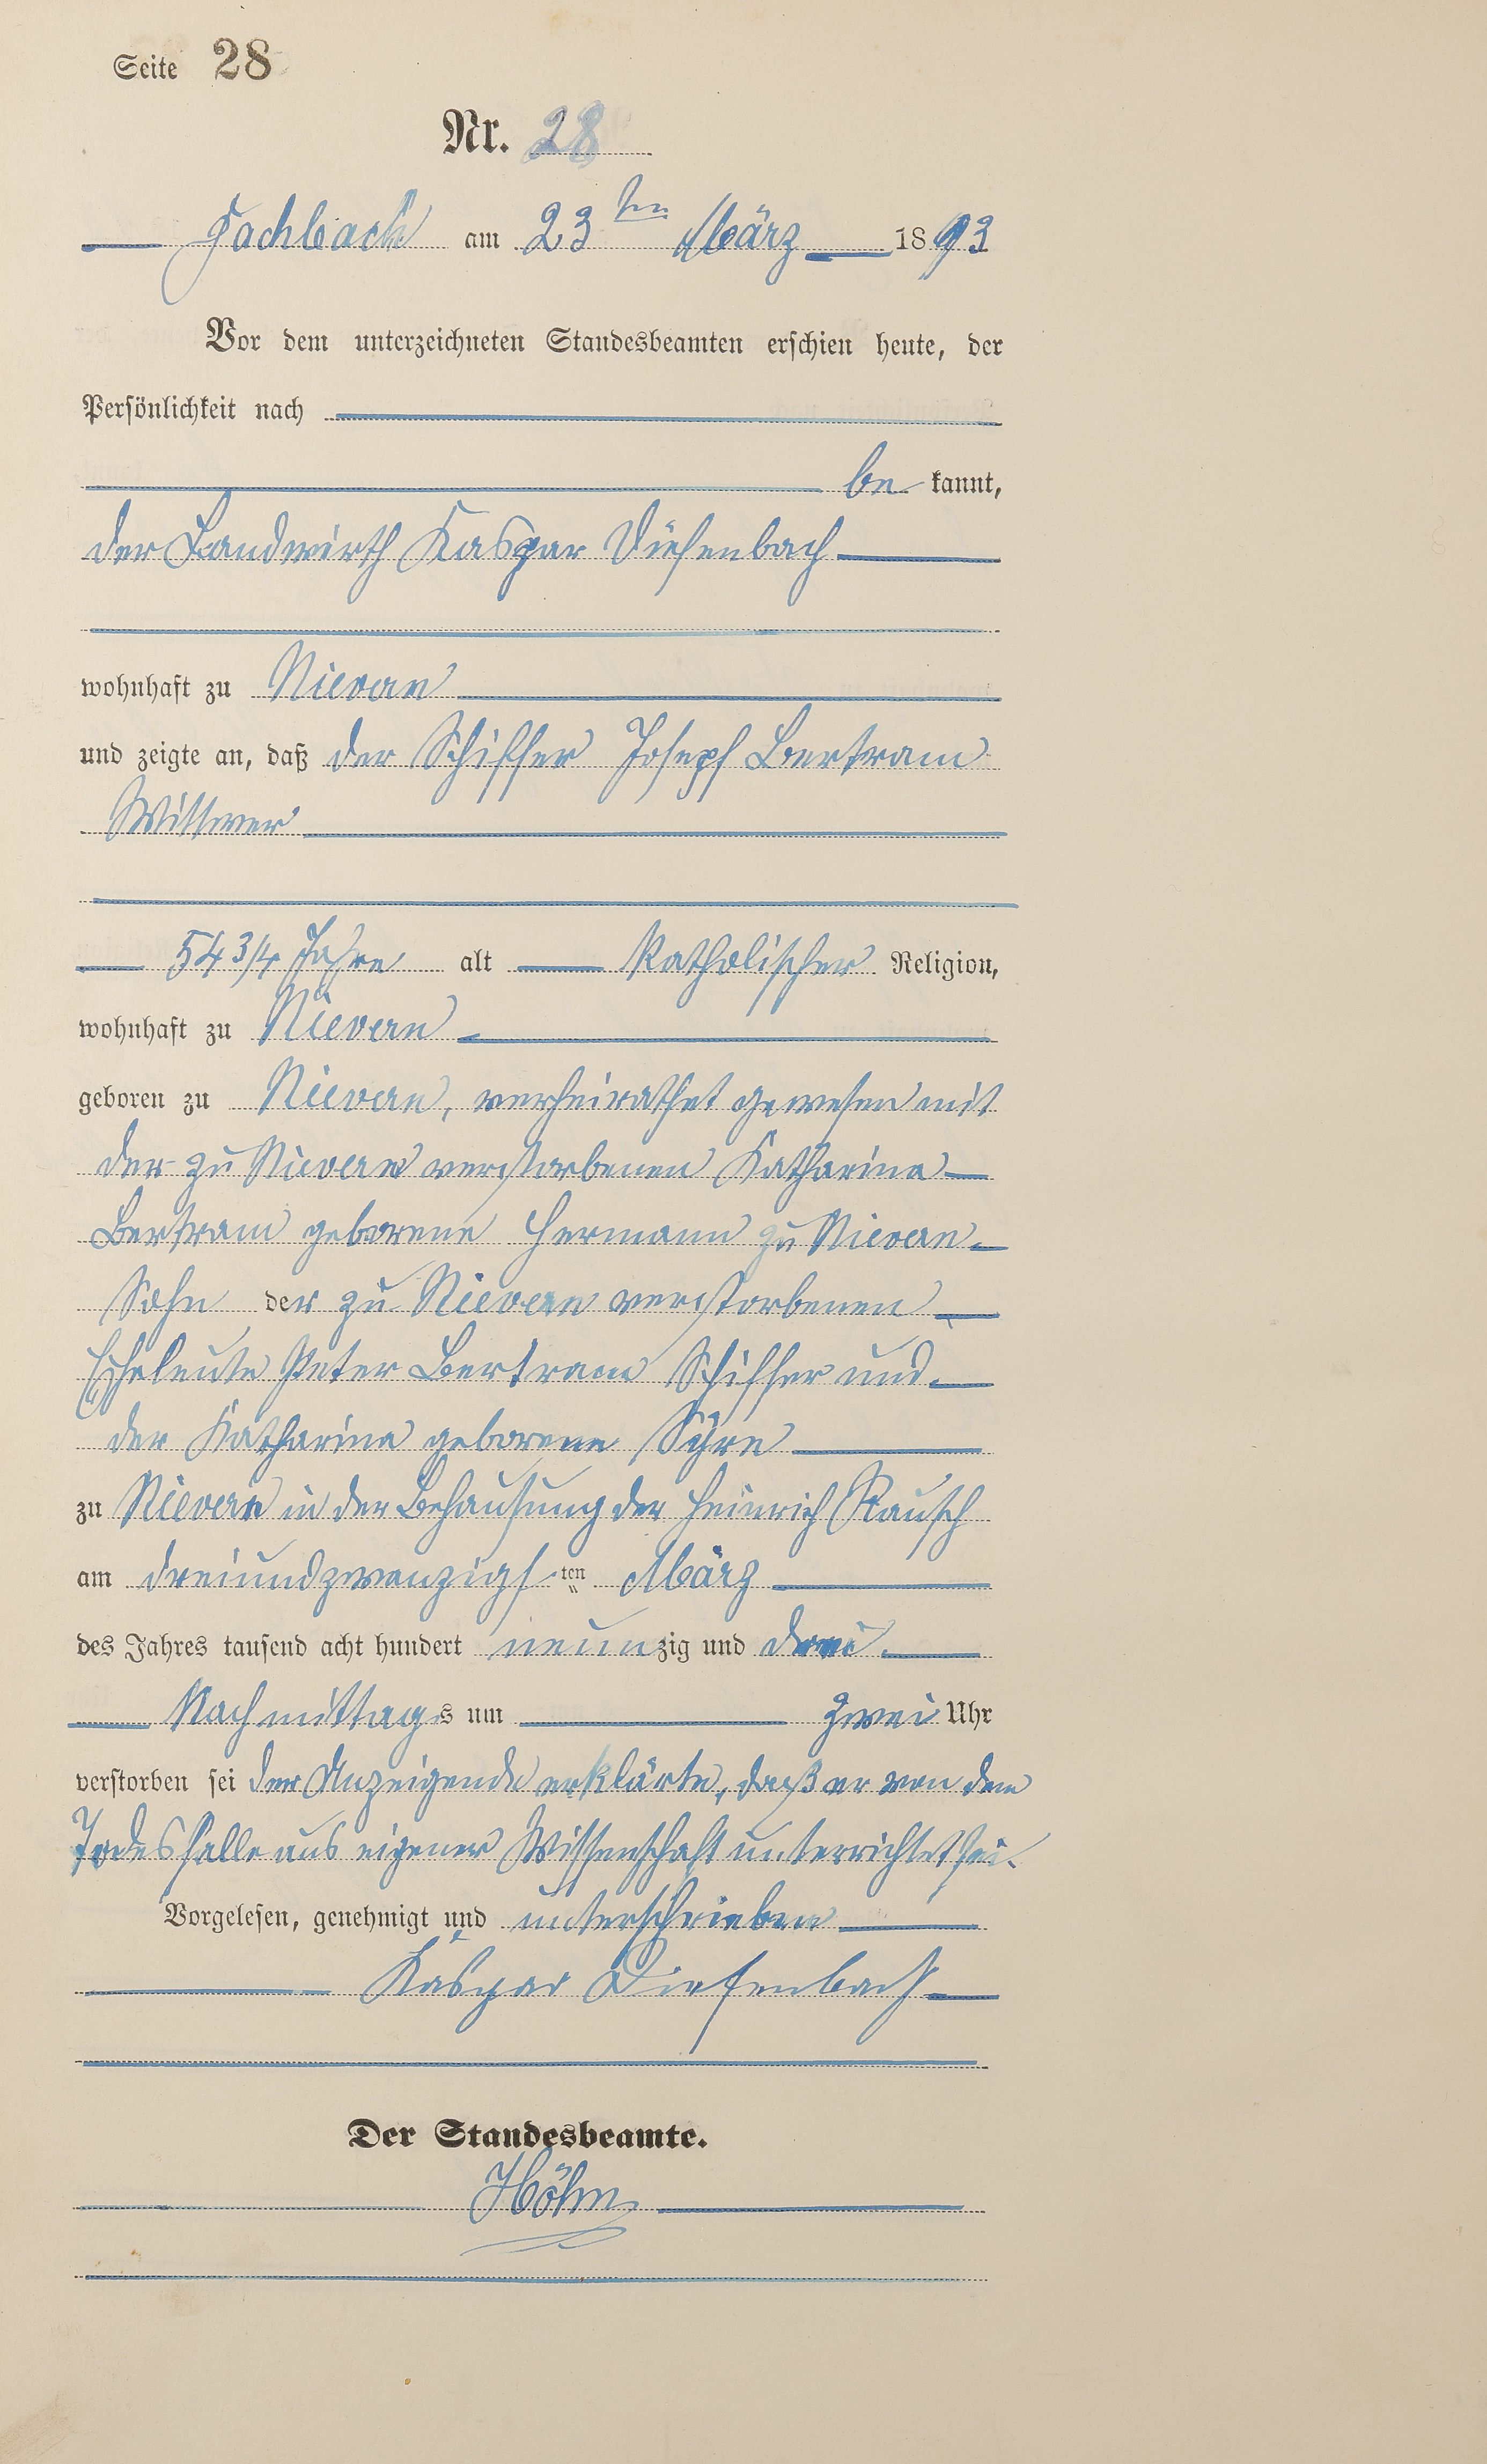 Seite 28
Nr. 28
Fachbach am 23ten März 1893
Vor dem unterzeichneten Standesbeamten erschien heute, der
Persönlichkeit nach
be kannt,
der Landwirth Kaspar Diefenbach
wohnhaft zu Nievern
und zeigte an, daß der Schiffer Joseph Bertram
Wittwer
54 3/4 Jahre alt katholischer Religion,
wohnhaft zu Nievern
geboren zu Nievern, verheirathet gewesen mit
der zu Nievern verstorbenen Katharina
Bertram geborene Hermann zu Nievern
Sohn der zu Nievern verstorbenen
Eheleute Peter Bertram Schiffer und
der Katharina geborene
zu Nievern in der Behausung der Heinrich Rausch
am dreiundzwanzigsten März
des Jahres tausend acht hundert neunzig und drei
Nachmittags um zwei Uhr
verstorben sei der Anzeigende erklärte, daß er von dem
Todesfalle aus eigener Wissenschaft unterrichtet sei.
Vorgelesen, genehmigt und unterschrieben
Kaspar Diefenbach
Der Standesbeamte.
Höhn